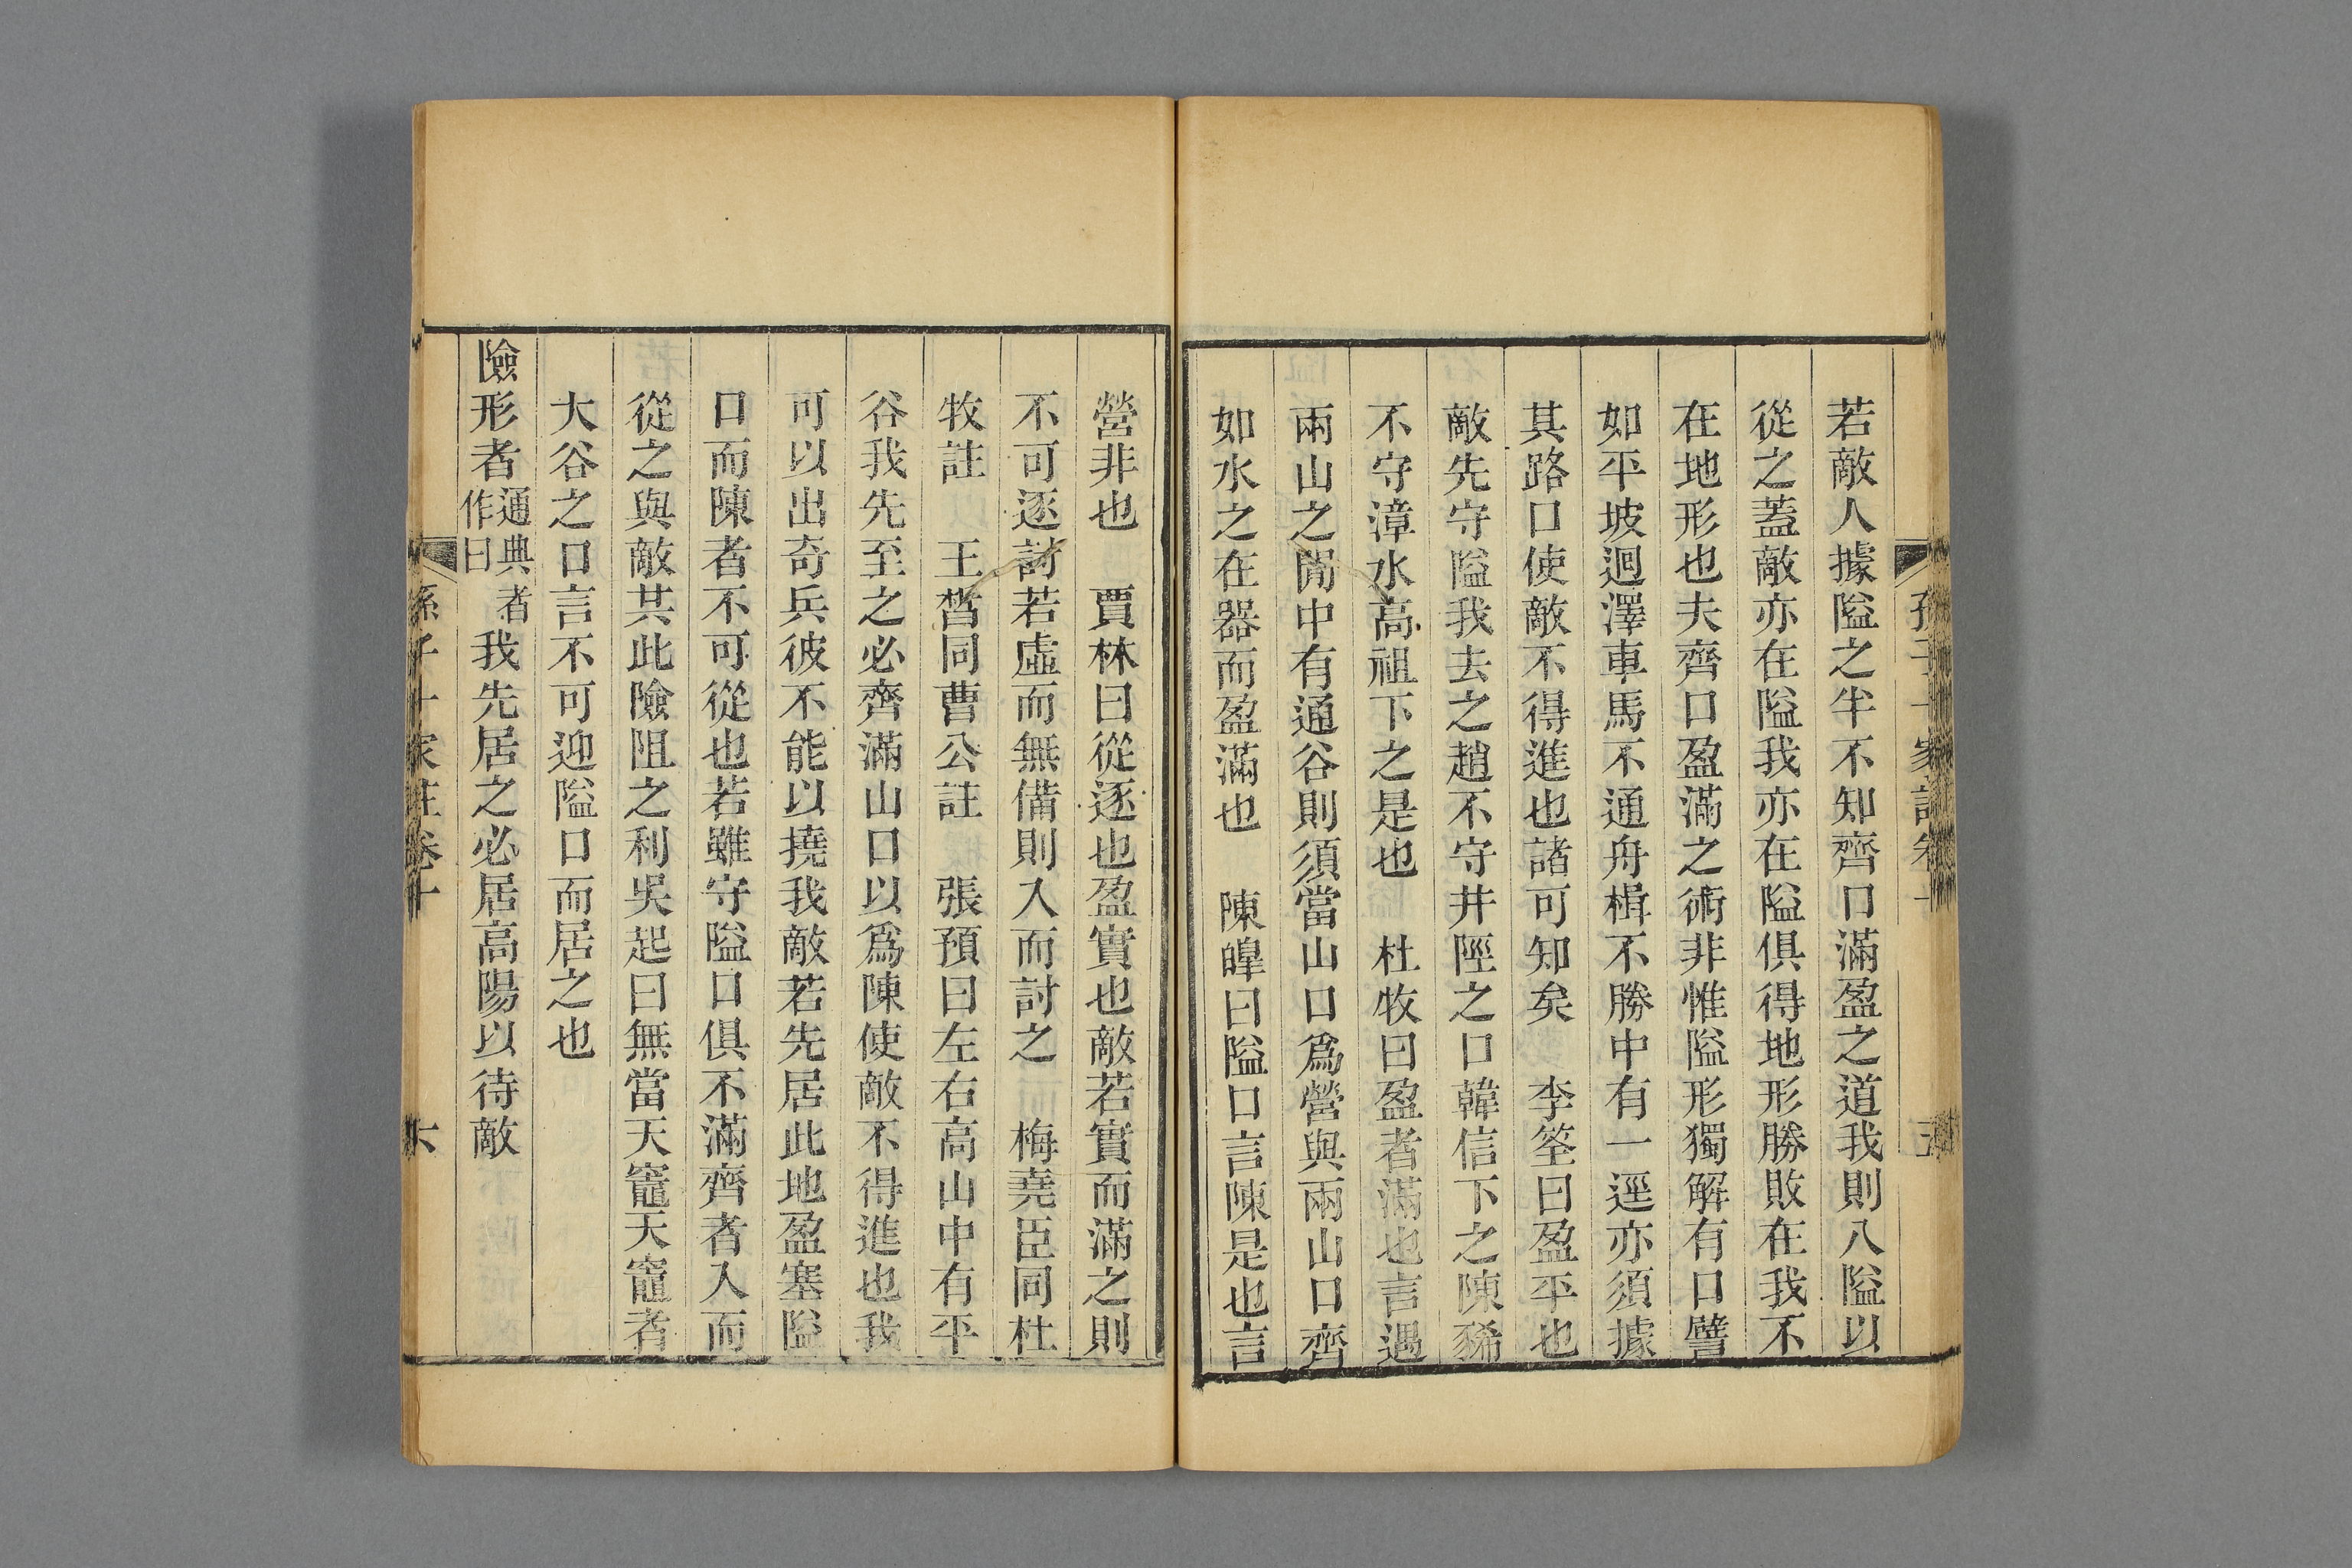 若敵人據隘之半不知齊口滿盈之道我則入隘以
從之蓋敵亦在隘我亦在隘俱得地形勝敗在我不
在地形也夫齊口盈滿之術非惟隘形獨解有口譬
如平坡迴澤車馬不通舟楫不勝中有一逕亦須據
其路口使敵不得進也諸可知矣　李筌曰盈平也
敵先守隘我去之趙不守井陘之口韓信下之陳豨
不守漳水高祖下之是也　杜牧曰盈者滿也言遇
兩山之閒中有通谷則須當山口爲營與兩山口齊
如水之在器而盈滿也　陳皥曰隘口言陳是也言
營非也　賈林曰從逐也盈實也敵若實而滿之則
不可逐討若虛而無備則入而討之　梅堯臣同杜
牧註　王晳同曹公註　張預曰左右高山中有平
谷我先至之必齊滿山口以爲陳使敵不得進也我
可以出奇兵彼不能以撓我敵若先居此地盈塞隘
口而陳者不可從也若雖守隘口俱不滿齊者入而
從之與敵共此險阻之利吳起曰無當天竈天竈者
大谷之口言不可迎隘口而居之也
險形者通典者作曰我先居之必居高陽以待敵
孫子十家註卷十　六